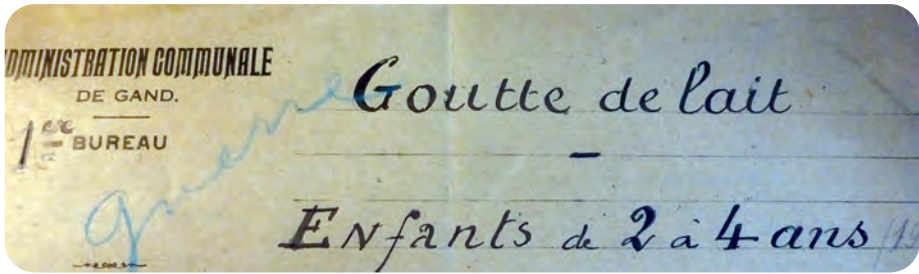 ADMINISTRATION COMMUNALE
DE GAND.
1er BUREAU
guerre
Goutte de lait
-
Enfants de 2 à 4 ans